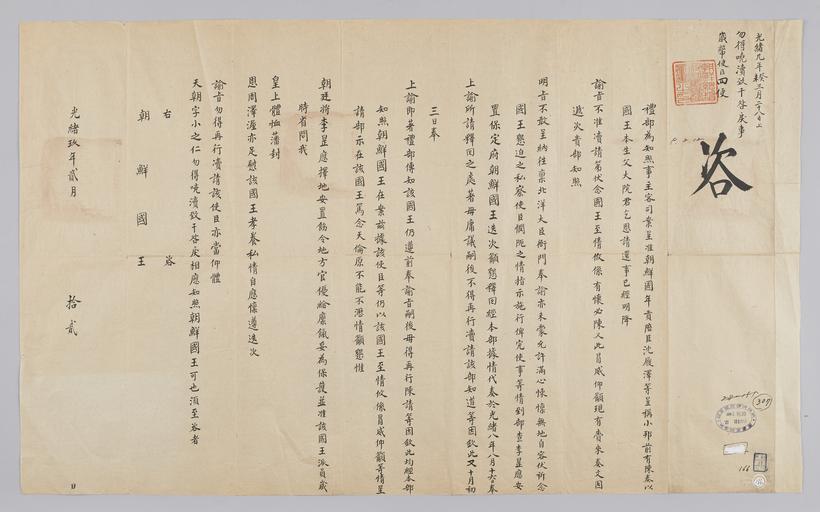 光緒九年癸三月二十八日上
勿得嘵瀆致干咎戾事
歲幣使臣回便
咨
禮部為知照事主客司案呈准朝鮮國年貢陪臣沈履澤等呈稱小邦前有陳奏以
國王本生父大院君乞恩請還事已經明降
諭旨不准瀆請第伏念國王至情攸係有懷必陳又此具咸仰籲現有賫來奏文因
明旨不敢呈納往稟北洋大臣衙門奉諭亦未蒙允許滿心悚懍無地自容伏祈念
國王懇迫之私察使臣憫阨之情指示施行俾完使事等情到部查李昰應安
置保定府朝鮮國王迭次籲懇釋回經本部據情代奏於光緒八年八月十六日奉
上諭所請釋回之處著毋庸議嗣後不得再行瀆請該部知道等因欽此又十月初
三日奉
上諭即著禮部傳知該國王仍遵前奉諭旨嗣後毋得再行陳請等因欽此均經本部
知照朝鮮國王在案茲據該使臣等仍以該國王至情攸係具咸仰籲等情呈
請部示在該國王篤念天倫原不能不瀝情籲懇惟
朝廷將李昰應擇地安置飭令地方官優給廩餼妥為保護並准該國王派員歲
時省問我
皇上體恤藩封
恩周澤渥亦足慰該國王孝養私情自應懍遵迭次
諭旨勿得再行瀆請該使臣亦當仰體
天朝字小之仁勿得嘵瀆致干咎戾相應知照朝鮮國王可也須至咨者
右咨
朝鮮國王
光緒玖年貳月拾貳日
307
166